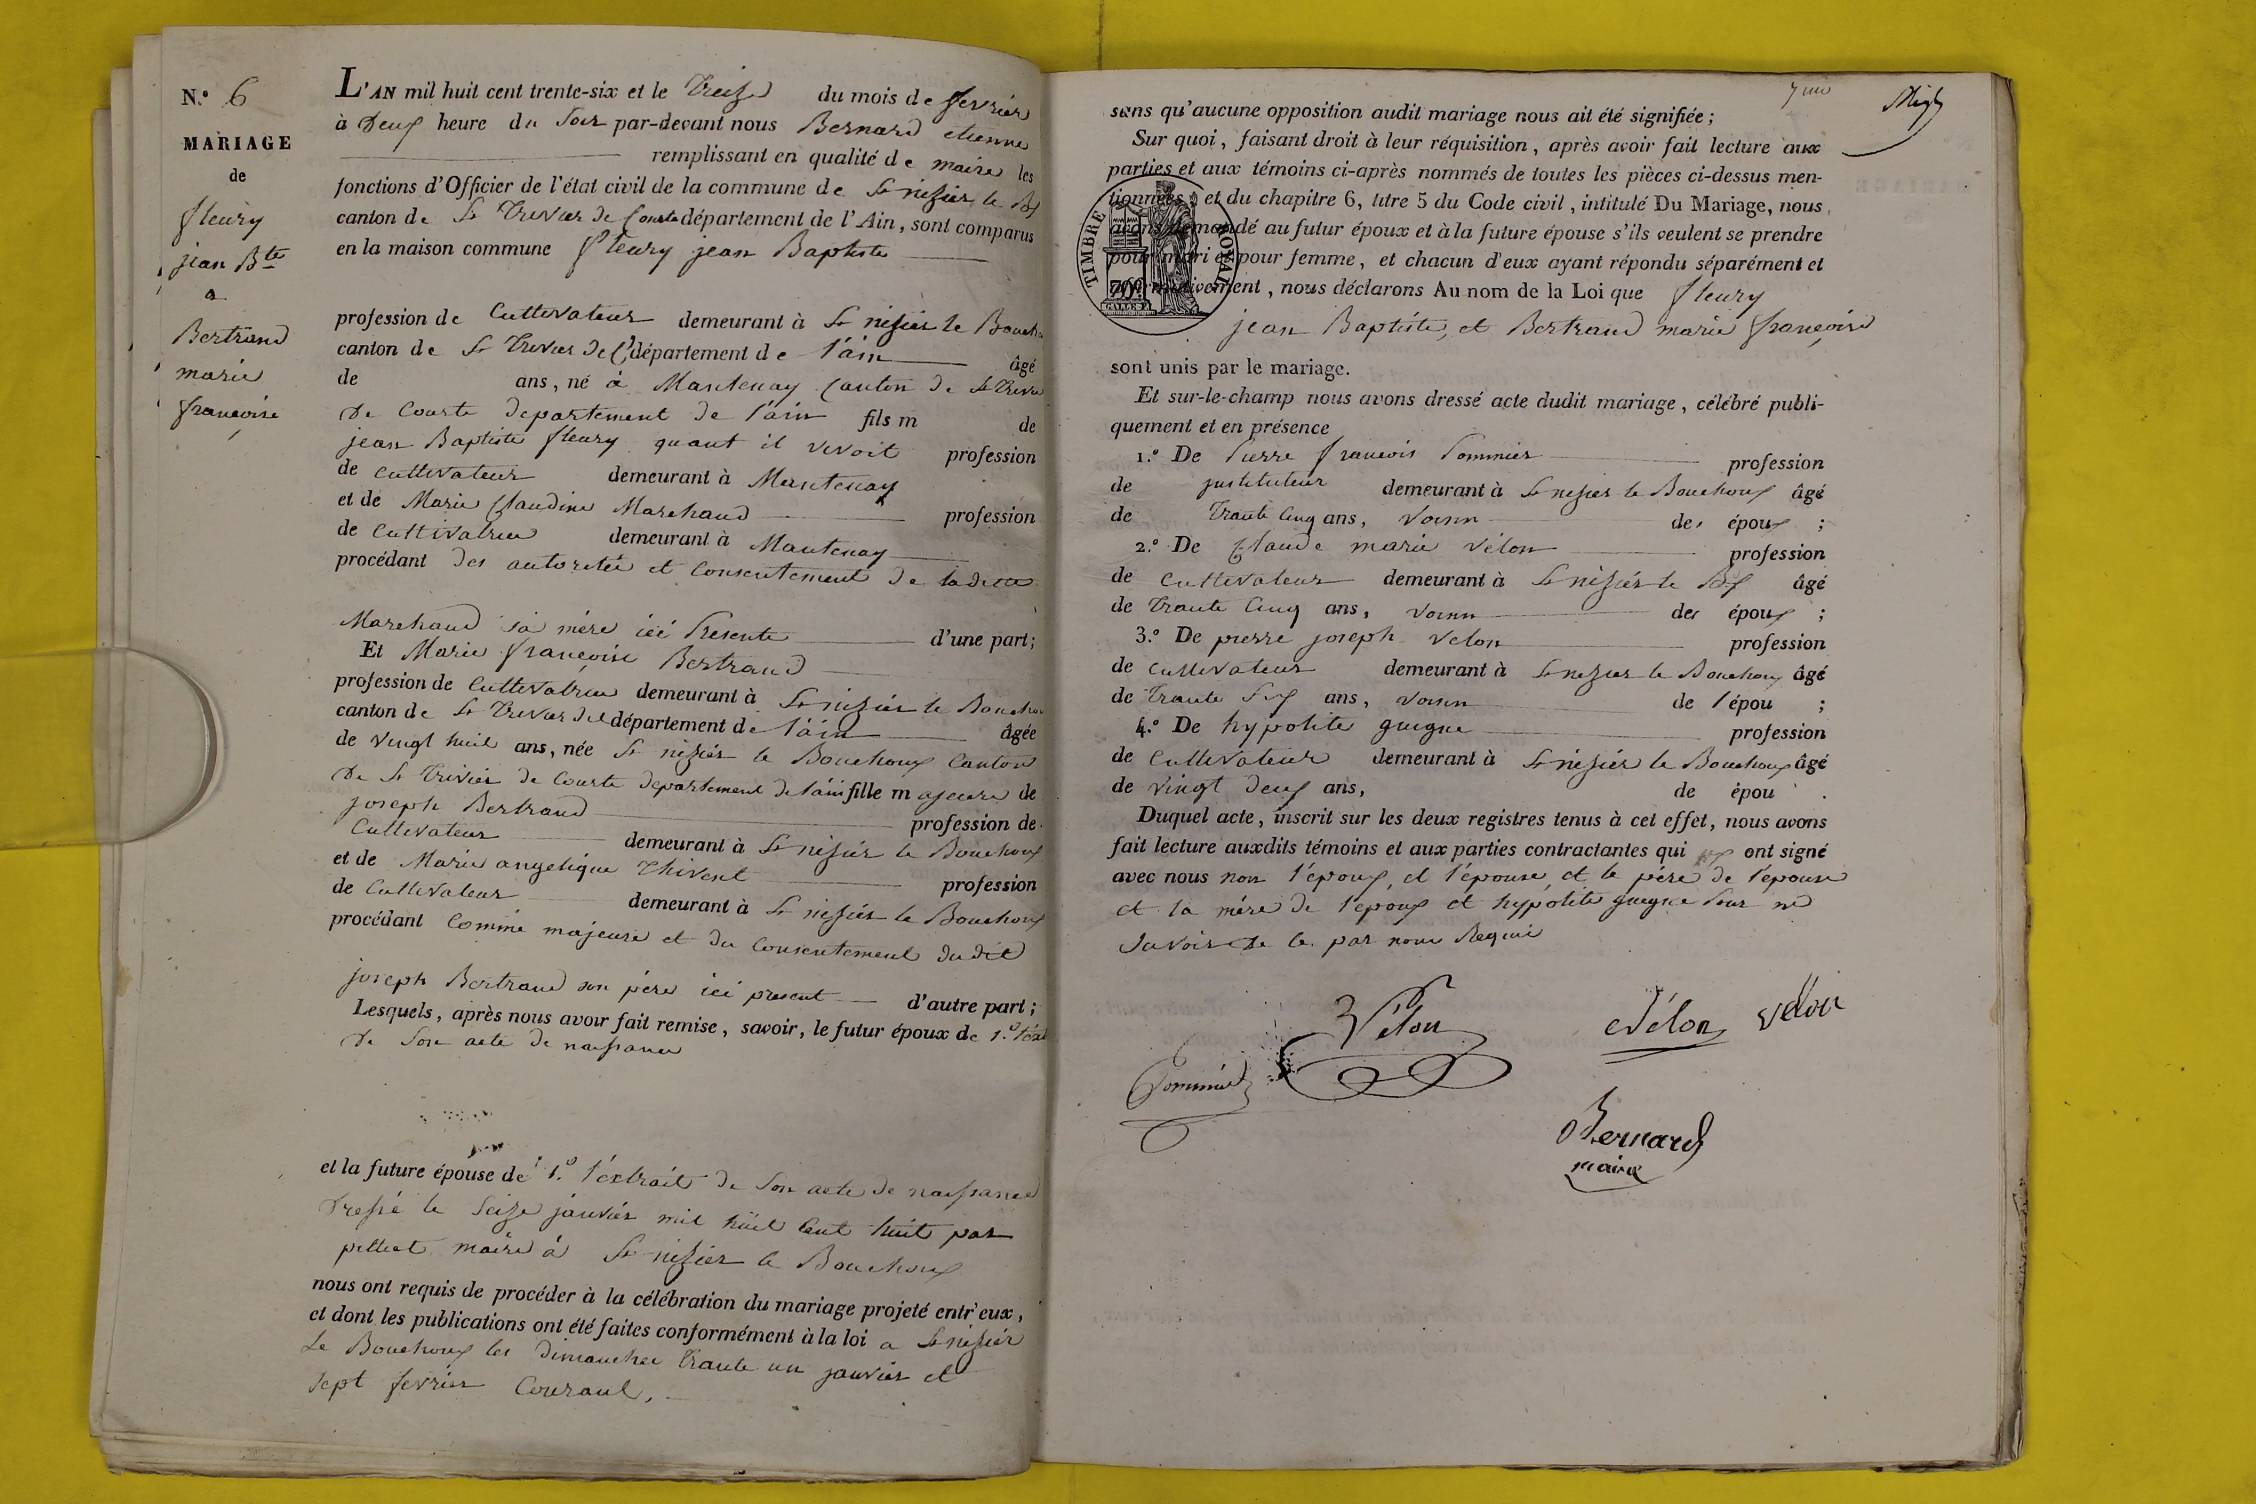 N.º 6
MARIAGE
de
fleury
jean Bte
a
Bertrand
marie
françoise
L'AN mil huit cent trente-six et le treize du mois de fevrier
à Deux heure du Soir par-devant nous Bernard etienne
remplissant en qualité de maire les
fonctions d'Officier de l'état civil de la commune de St nizier le Bx
canton de St Trivier de Courte département de l'Ain, sont comparus
en la maison commune fleury jean Baptiste
profession de Cultivateur demeurant à St nizier le Bouchoux
canton de St Trivier de C. département de l'ain âgé
de ans, né à Mantenay Canton de St Trivier
De Courte departement de l'ain fils m de
jean Baptiste fleury quant il vivoit profession
de cultivateur demeurant à Mantenay
et de Marie Claudine Marchand profession
de Cultivatrice demeurant à Mantenay
procédant des autoritée et Consentement de laditte
Marchand sa mére ici Presente d'une part;
Et Marie françoise Bertrand
profession de Cultivatrice demeurant à St nizier le Bouchoux
canton de St Trivier de C département de l'ain âgée
de vingt huit ans, née St nizier le Bouchoux Canton
De St Trivier de Courte departement de l'ain fille majeure de
joseph Bertrand profession de
Cultivateur demeurant à St nizier le Bouchoux
et de Marie angelique Thivent profession
de Cultivateur demeurant à St nizier le Bouchoux
procédant Comme majeure et du Consentement dudit
joseph Bertrand son pére ici present d'autre part;
Lesquels, après nous avoir fait remise, savoir, le futur époux de 1.º
De Son acte de naissance
et la future épouse de 1.º l'extrait de Son acte de naissance
Dressé le Seize janvier mil huit Cent huit par
maire à St nizier le Bouchoux
nous ont requis de procéder à la célébration du mariage projeté entr'eux,
et dont les publications ont été faites conformément à la loi a St nizier
Le Bouchoux les dimanches trante un janvier et
sept fevrier Courant,
sans qu'aucune opposition audit mariage nous ait été signifiée;
Sur quoi, faisant droit à leur réquisition, après avoir fait lecture aux
parties et aux témoins ci-après nommés de toutes les pièces ci-dessus men-
tionnées, et du chapitre 6, titre 5 du Code civil, intitulé Du Mariage, nous
avons demandé au futur époux et à la future épouse s'ils veulent se prendre
pour mari et pour femme, et chacun d'eux ayant répondu séparément et
affirmativement, nous déclarons Au nom de la Loi que fleury
jean Baptiste, et Bertrand marie françoise
TIMBRE ROYAL
70c
sont unis par le mariage.
Et sur-le-champ nous avons dressé acte dudit mariage, célébré publi-
quement et en présence
1.º De Pierre françois Pommier profession
de justituteur demeurant à St nizier le Bouchoux âgé
de Trante Cinq ans, voisin des époux ;
2.º De Claude marie Vélon profession
de Cultivateur demeurant à St nizier le Bx âgé
de Trante Cinq ans, voisin des époux ;
3.º De pierre joseph Velon profession
de Cultivateur demeurant à St nizier le Bouchoux âgé
de Trante Six ans, voisin de l'épou ;
4.º De hypolite guigue profession
de Cultivateur demeurant à St nizier le Bouchoux âgé
de vingt deux ans, de épou .
Duquel acte, inscrit sur les deux registres tenus à cet effet, nous avons
fait lecture auxdits témoins et aux parties contractantes qui ont signé
avec nous non l'époux, et l'épouse, et le pére de l'épouse
et la mére de l'époux et hypolite guigue pour ne
Savoir De Ce par nous Requi
Vélon Vélon vélon
Pommier
Bernard
maire